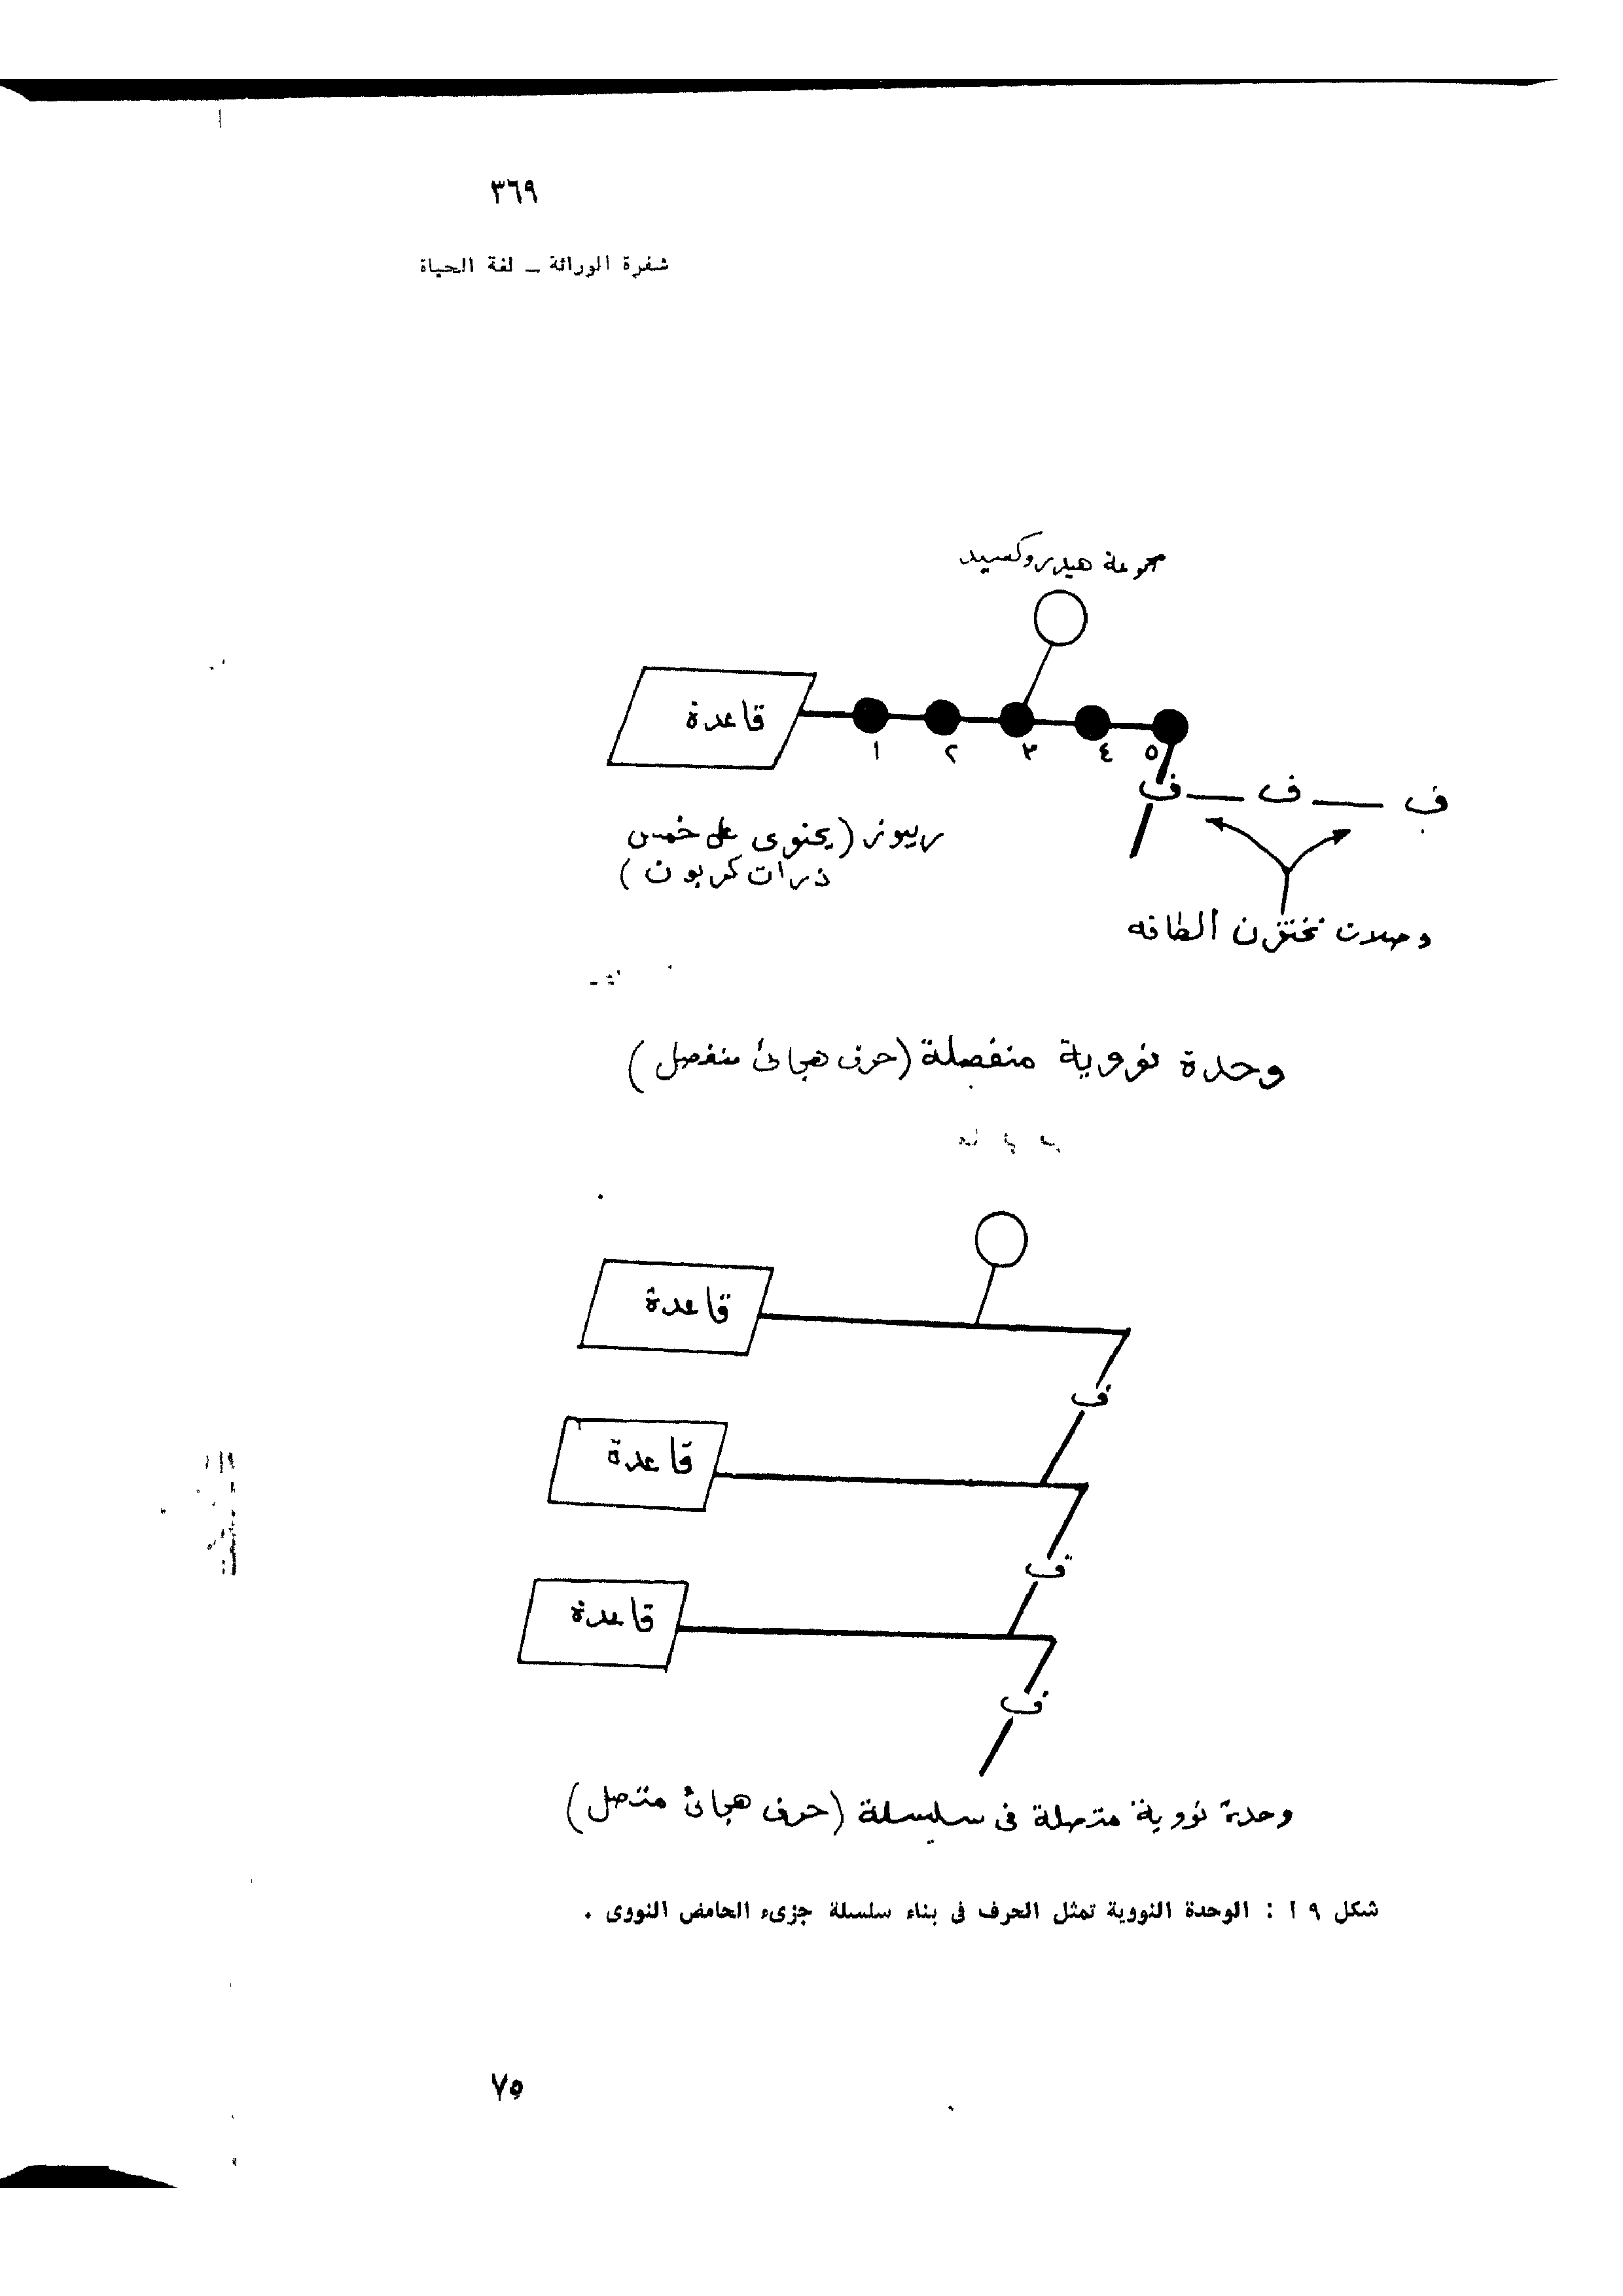 ٣٦٩
شفرة الوراثة ــ لغة الحياة
مجموعة هيدروكسيد
قاعدة
١ ٢ ٣ ٤ ٥
ف ف ف
ريبوز (يحتوى على خمس
ذرات كربون)
وصلات تختزن الطاقه
وحدة نووية منفصلة (حرف هجائى منفصل)
قاعدة
ف
قاعدة
ف
قاعدة
ف
وحدة نووية متصلة فى سلسلة (حرف هجائى متصل)
شكل ٩ أ : الوحدة النووية تمثل الحرف فى بناء سلسلة جزىء الحامض النووى .
٧٥